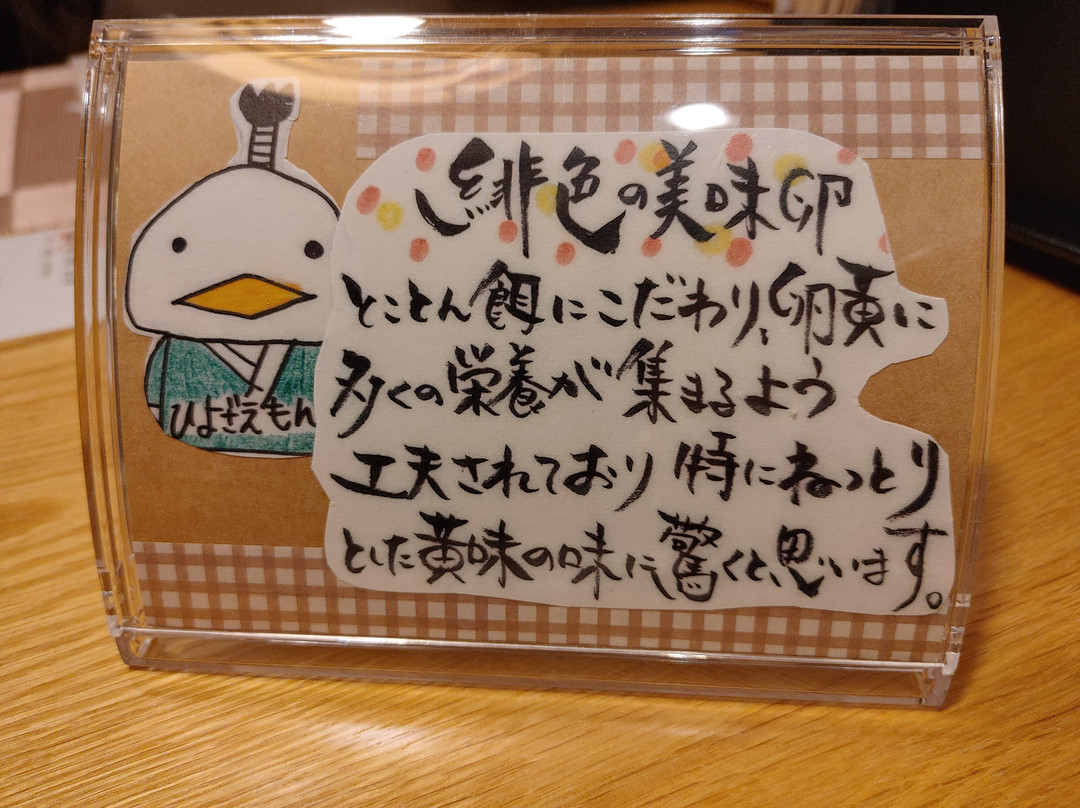 緋色の美味卵
とことん餌にこだわり、卵黄に
多くの栄養が集まるよう
工夫されており 特にねっとり
とした黄味の味に驚くと、思います。
ひよざえもん